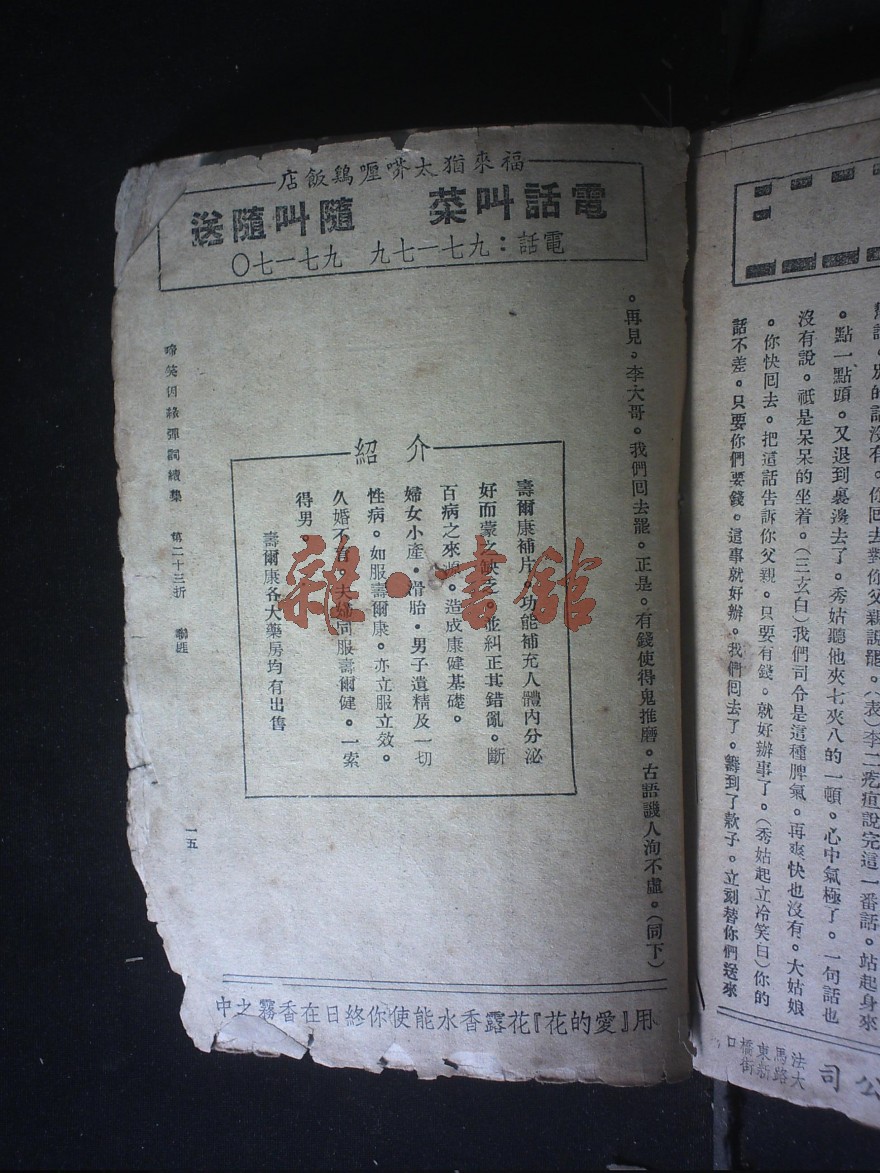 福來猶太咖喱鷄飯店
電話叫菜　隨叫隨送
電話：九七一七九　九七一七〇
。再見。李大哥。我們回去罷。正是。有錢使得鬼推磨。古語譏人洵不虛。（同下）
介紹
壽爾康補片。功能補充人體內分泌
好而蒙之缺乏。並糾正其錯亂。斷
百病之來源。造成康健基礎。
婦女小產。滑胎。男子遺精及一切
性病。如服壽爾康。亦立服立效。
久婚不育。夫婦同服壽爾健。一索
得男。
壽爾康各大藥房均有出售
啼笑因緣彈詞續集　第二十三折　聯
一五
用『愛的花』花露香水能使你終日在香霧之中
去對你父親說罷。（表）李二疙疸說完這一番話。站起身來
。點一點頭。又退到裏邊去了。秀姑聽他夾七夾八的一頓。心中氣極了。一句話也
沒有說。祇是呆呆的坐着。（三玄白）我們司令是這種脾氣。再爽快也沒有。大姑娘
。你快回去。把這話告訴你父親。只要有錢。就好辦事了。（秀姑起立冷笑白）你的
話不差。只要你們要錢。這事就好辦。我們回去了。籌到了款子。立刻替你們送來
公司
法大馬路
東新橋街口
雜·書館